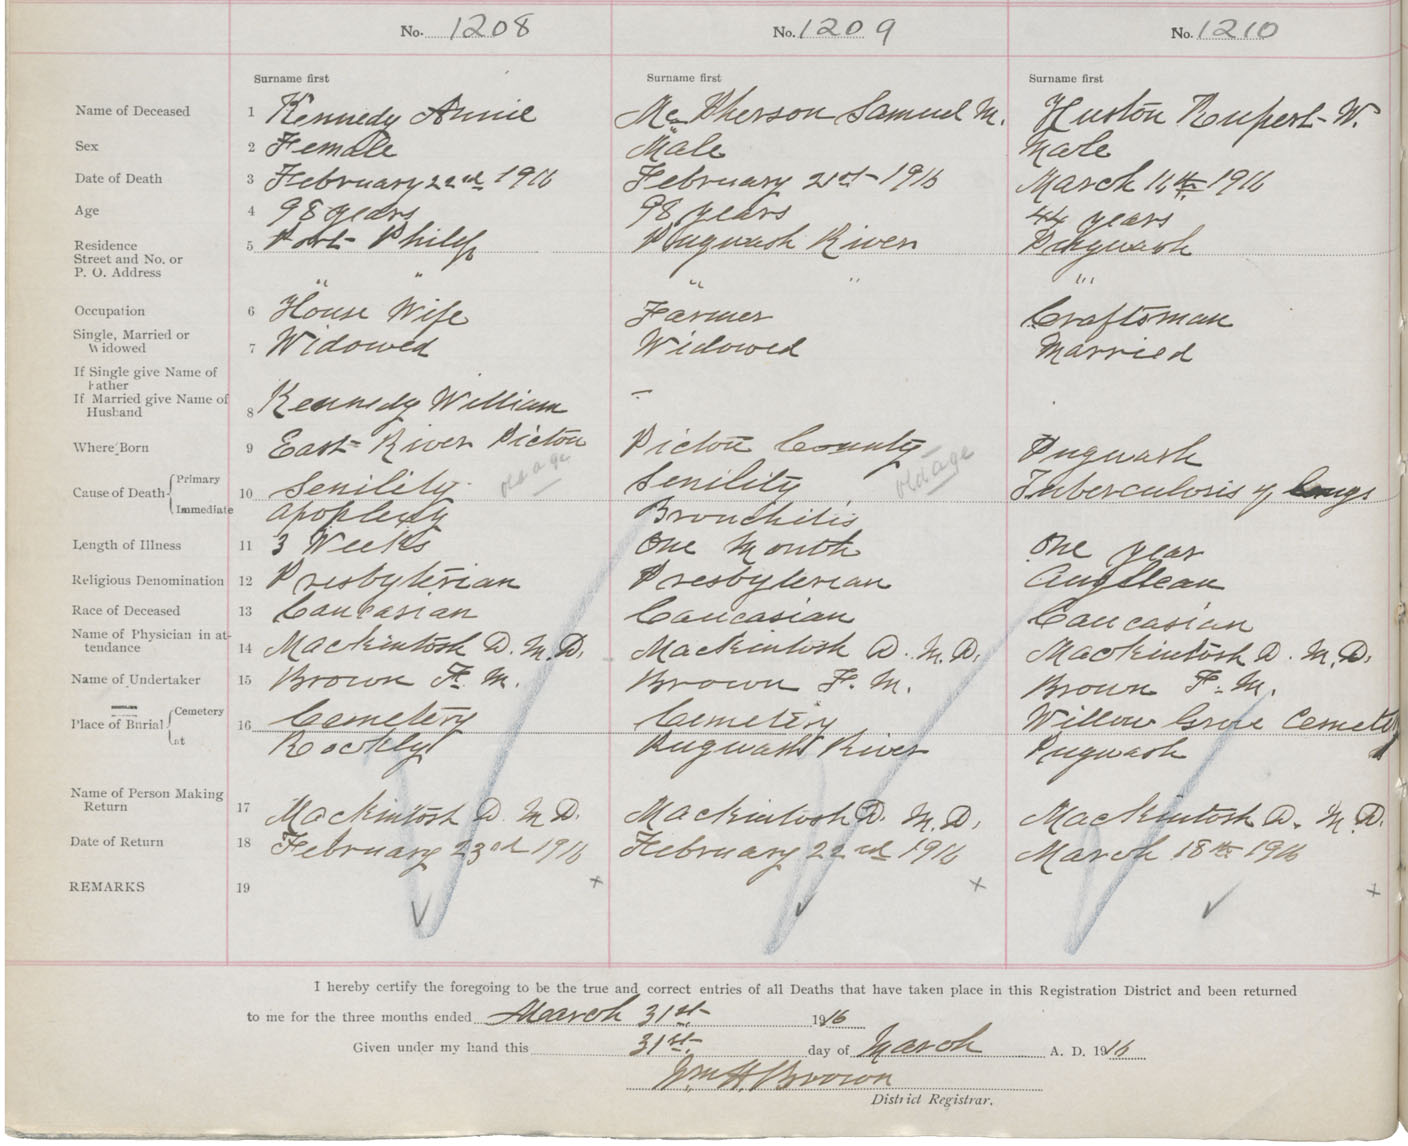 No. 1208 No. 1209 No. 1210
Surname first Surname first Surname first
Name of Deceased 1 Kennedy Annie McPherson Samuel M. Huston Rupert W.
Sex 2 Female Male Male
Date of Death 3 February 22nd 1916 February 21st 1916 March 16th 1916
Age 4 98 years 98 years 44 years
Residence 5 Port Philip Pugwash River Pugwash
Street and No. or
P. O. Address " " " " "
Occupation 6 House Wife Farmer Craftsman
Single, Married or
Widowed 7 Widowed Widowed Married
If Single give Name of
Father
If Married give Name of
Husband 8 Kennedy William –
Where Born 9 East River Pictou Pictou County Pugwash
Cause of Death Primary 10 Senility old age Senility old age Tuberculosis of Lungs
Immediate apoplexy Bronchitis
Length of Illness 11 3 Weeks One Month One year
Religious Denomination 12 Presbyterian Presbyterian Anglican
Race of Deceased 13 Caucasian Caucasian Caucasian
Name of Physician in at-
tendance 14 Mackintosh D. M.D. Mackintosh D. M.D. Mackintosh D. M.D.
Name of Undertaker 15 Brown F. M. Brown F. M. Brown F. M.
Place of Burial Cemetery 16 Cemetery Cemetery Willow Grove Cemetery
at Rockly Pugwash River Pugwash
Name of Person Making
Return 17 Mackintosh D. M.D. Mackintosh D. M.D. Mackintosh D. M.D.
Date of Return 18 February 23rd 1916 February 22nd 1916 March 18th 1916
REMARKS 19 x x x
I hereby certify the foregoing to be the true and correct entries of all Deaths that have taken place in this Registration District and been returned
to me for the three months ended March 31st 1916
Given under my hand this 31st day of March A. D. 1916
Wm H. Brown
District Registrar.